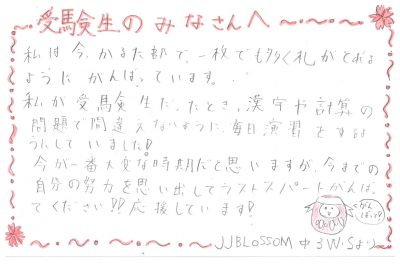 受験生のみなさんへ
私は今、かるた部で、一枚でも多く札がとれる
ようにがんばっています。
私が受験生だったとき、漢字や計算の
問題で間違えないように、毎日演習をするよ
うにしていました!
今が一番大変な時期だと思いますが、今までの
自分の努力を思い出してラストスパートがんばっ
てください!!応援しています!
がんばって!
JJBLOSSOM 中3 W.Sより